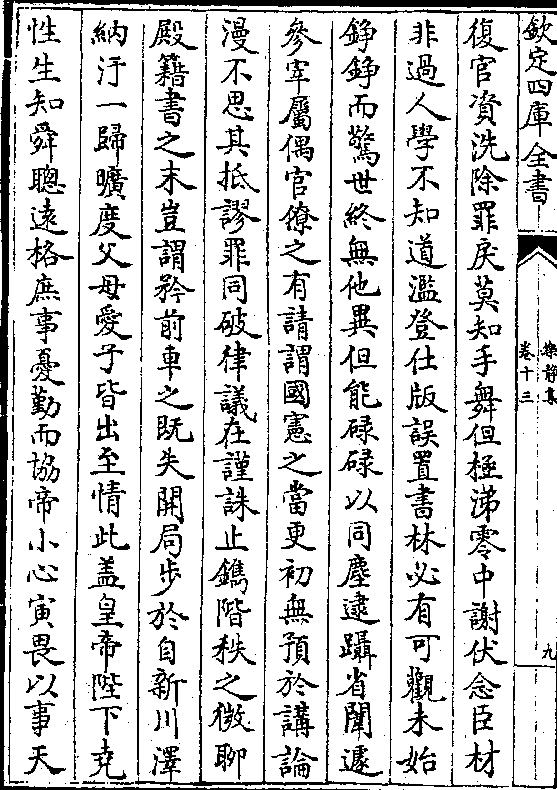 欽定四庫全書
樂靜集
卷十三
九
復官資洗除罪戾莫知手舞但極涕零中謝伏念臣材
非過人學不知道濫登仕版誤置書林必有可觀未始
錚錚而驚世終無他異但能碌碌以同塵逮躡省闈遽
參宰屬偶官僚之有請謂國憲之當更初無預於講論
漫不思其抵謬罪同破律議在謹誅止鐫階秩之微聊
殿籍書之末豈謂矜前車之既失開局步於自新川澤
納汙一歸曠度父母愛子皆出至情此盖皇帝陛下堯
性生知舜聰遠格庶事憂勤而協帝小心寅畏以事天